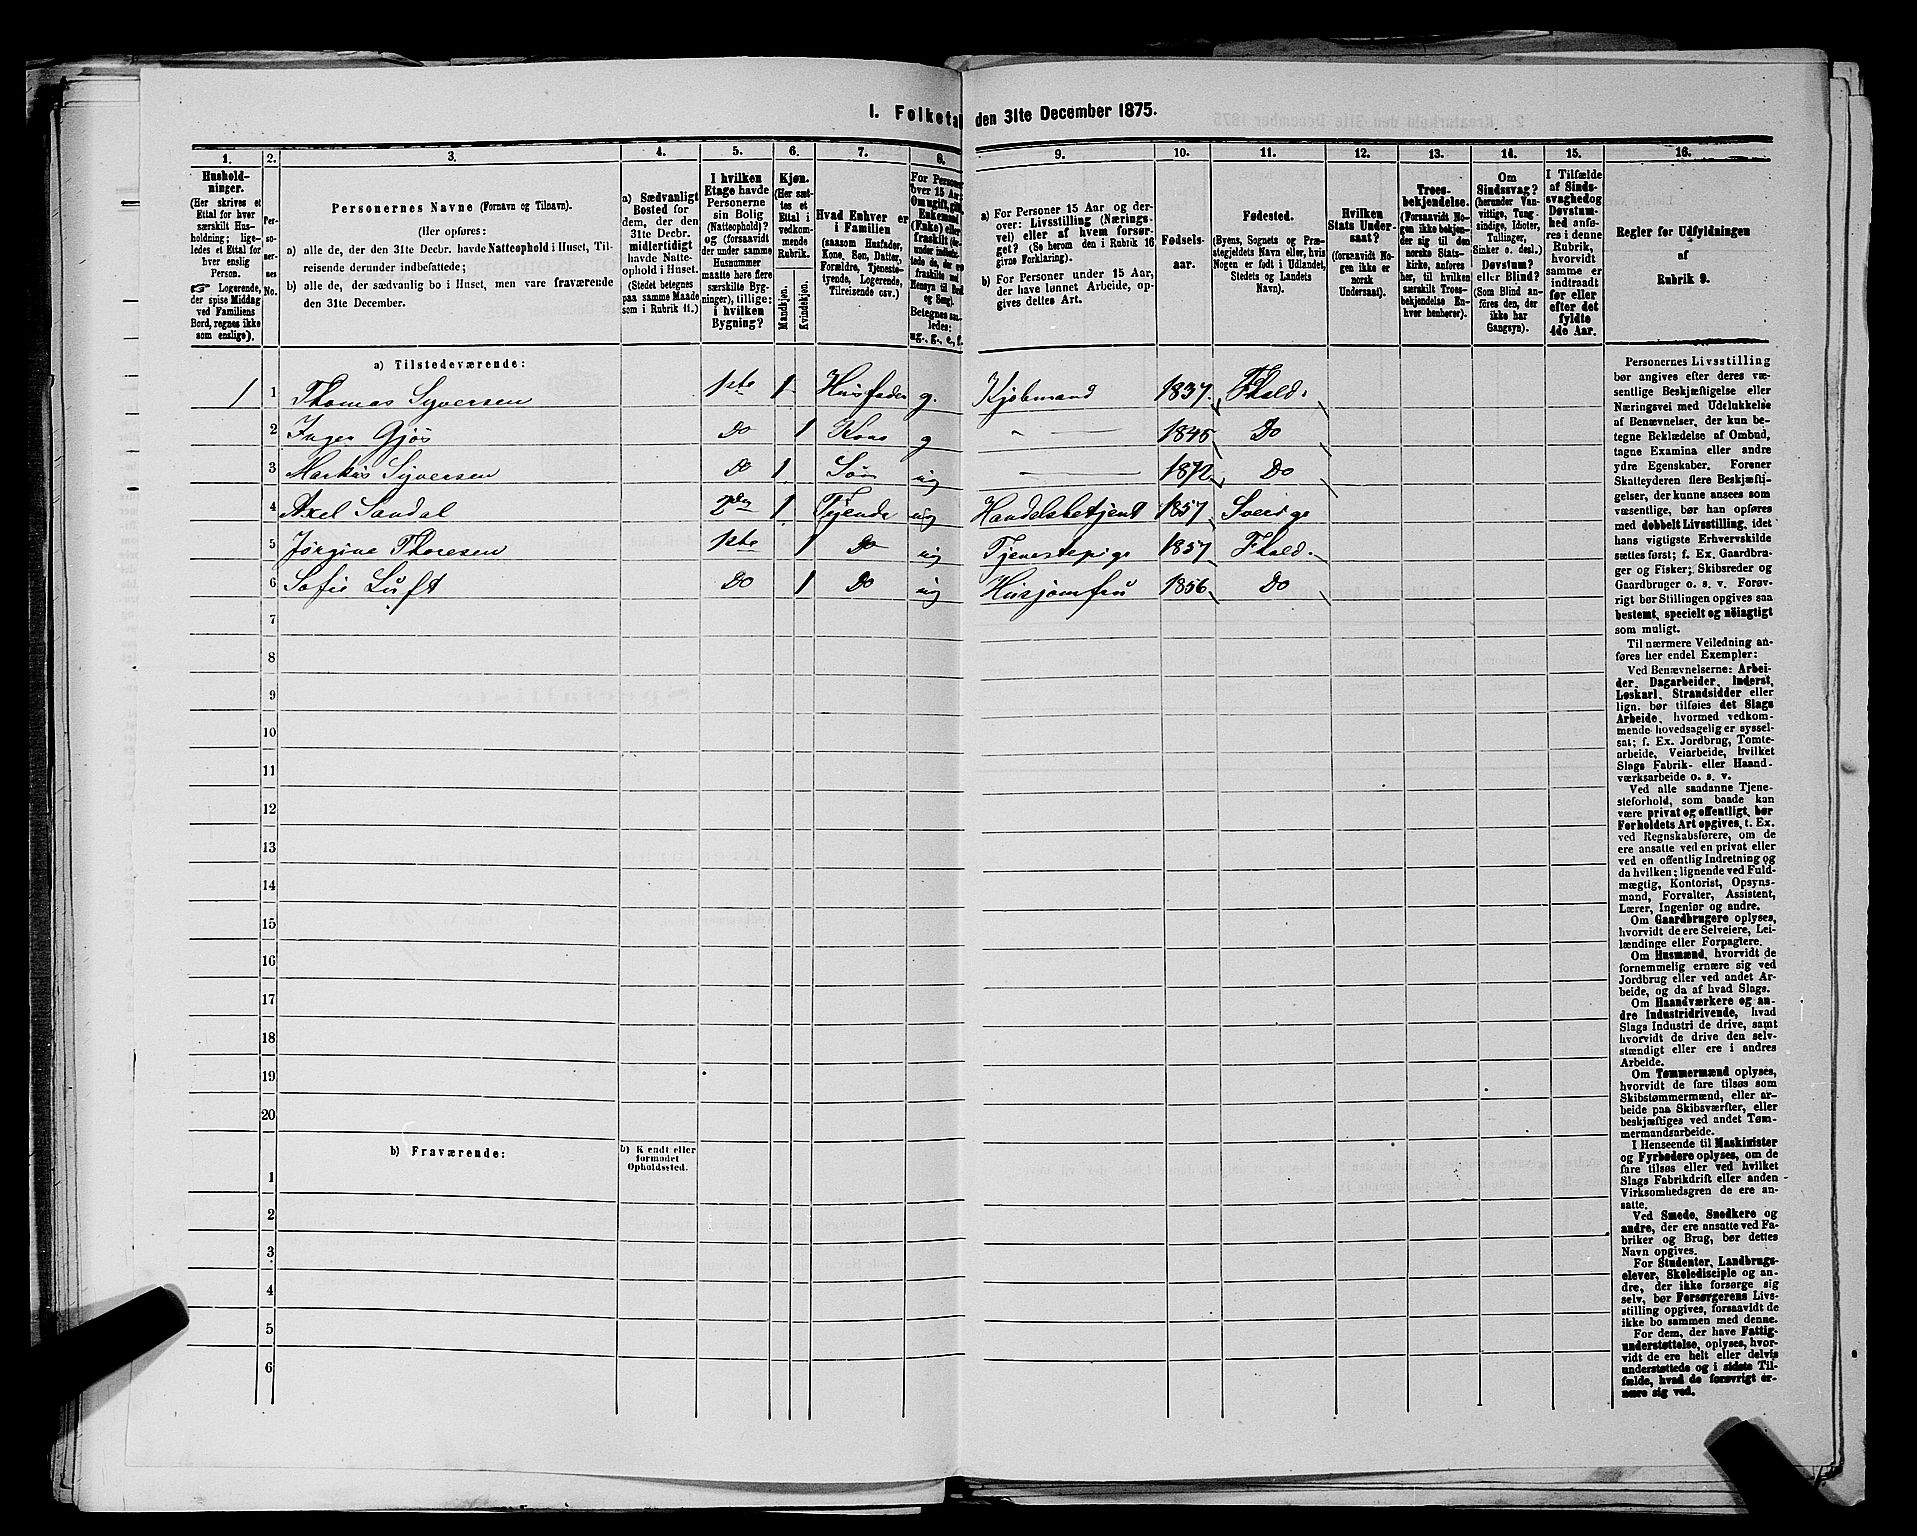 I. Folketal den 31te December 1875.
1. 2. 3. 4. 5. 6. 7. 8. 9. 10. 11. 12. 13. 14. 15. 16.
Husholdninger.
(Her skrives et
Ettal for hver
særskilt Husholdning; ligeledes et Ettal for
hver enslig
Person.
☞ Logerende,
der spise Middag
ved Familiens
Bord, regnes ikke
som enslige).
Personernes No.
Personernes Navne (Fornavn og Tilnavn).
(Her opføres:
a) alle de, der den 31te Decbr. havde Natteophold i Huset, Tilreisende derunder indbefattede;
b) alle de, der sædvanlig bo i Huset, men vare fraværende
den 31te December.
a) Sædvanligt
Bosted for
dem, der den
31te Decbr.
midlertidigt
havde Natteophold i Huset.
(Stedet betegnes
paa samme Maade
som i Rubrik 11.)
I hvilken
Etage havde
Personerne
sin Bolig
(Natteophold)?
og (forsaavidt
der under samme
Husnummer
maatte høre flere
særskilte Bygninger), tillige:
i hvilken
Bygning?
Kjøn.
(Her sættes et
Ettal i
vedkommende
Rubrik.
Mandkjøn.
Kvindekjøn.
Hvad Enhver er
i Familien
(saasom Husfader,
Kone, Søn, Datter,
Forældre, Tjenestetyende, Logerende,
Tilreisende osv.)
a) For Personer 15 Aar og derover: Livsstilling (Næringsvei) eller af hvem forsørget? (Se herom den i Rubrik 16
givne Forklaring).
b) For Personer under 15 Aar,
der have lønnet Arbeide, opgives dettes Art.
Fødselsaar.
Fødested.
(Byens, Sognets og Præstegjeldets Navn eller, hvis
Nogen er født i Udlandet,
Stedets og Landets
Navn).
Hvilken
Stats Undersaat?
(forsaavidt Nogen ikke er
norsk
Undersaat).
Troesbekjendelse.
(Forsaavidt Nogen ikke bekjender sig til den
norske Statskirke, anføres
her, til hvilken
særskilt Troesbekjendelse Enhver henhører).
Om
Sindssvag?
(herunder Vanvittige, Tungsindige, Idioter,
Tullinger,
Sinker o. desl.).
Døvstum?
eller Blind?
(Som Blind anføres den, der
ikke har
Gangsyn).
I Tilfælde
af Sindssvaghed og
Døvstumhed anføres i denne
Rubrik,
hvorvidt
samme er
indtraadt
før eller
efter det
fyldte
4de Aar.
Regler for Udfyldningen
af
Rubrik 9.
a) Tilstedeværende:
1 1 Thomas Syversen 1ste 1 Husfader g. Kjøbmand 1837 Fhald.
2 Inger Gjøs Do 1 Kone g — 1845 Do
3 Markus Syversen Do 1 Søn ug — 1872 Do
4 Axel Sandal 2den 1 Tjende ug Handelsbetjent 1857 Sverige
5 Jørgine Thoresen 1ste 1 Do ug Tjenestepige 1857 Fhald.
6 Sofie Luft Do 1 Do ug Husjomfru 1856 Do
7
8
9
10
11
12
13
14
15
16
17
18
19
20
b) Fraværende:
b) Kjendt eller
formodet
Opholdssted.
1
2
3
4
5
6
Personernes Livsstilling
bør angives efter deres væsentlige Beskjæftigelse eller
Næringsvei med Udelukkelse
af Benævnelser, der kun betegne Beklædelse af Ombud,
tagne Examina eller andre
ydre Egenskaber. Forener
Skatteyderen flere Beskjæftigelser, der kunne ansees som
væsentlige, bør han opføres
med dobbelt Livsstilling, idet
hans vigtigste Erhvervskilde
sættes først; f. Ex. Gaardbruger og Fisker; Skibsreder og
Gaardbruger o. s. v. Forøvrigt bør Stillingen opgives saa
bestemt, specielt og nöiagtigt
som muligt.
Til nærmere Veiledning anføres her endel Exempler:
Ved Benævnelserne: Arbeider, Dagarbeider, Inderst,
Løskarl, Strandsidder eller
lign. bør tilføies det Slags
Arbeide, hvormed vedkommende hovedsagelig er sysselsat; f. Ex. Jordbrug, Tomtearbeide, Veiarbeide, hvilket
Slags Fabrik- eller Haandværksarbeide o. s. v.
Ved alle saadanne Tjenesteforhold, som baade kan
være privat og offentligt, bør
Forholdets Art opgives, t. Ex.
ved Regnskabsførere, om de
ere ansatte ved en privat eller
ved en offentlig Indretning og
da hvilken; lignende ved Fuldmægtig, Kontorist, Opsynsmand, Forvalter, Assistent,
Lærer, Ingeniør og andre.
Om Gaardbrugere oplyses,
hvorvidt de ere Selveiere, Leilændinge eller Forpagtere.
Om Husmænd, hvorvidt de
fornemmelig ernære sig ved
Jordbrug eller ved andet Arbeide, og da af hvad Slags.
Om Haandværkere og andre Industridrivende, hvad
Slags Industri de drive, samt
hvorvidt de drive den selvstændigt eller ere i andres
Arbeide.
Om Tømmermænd oplyses,
hvorvidt de fare tilsøs som
Skibstømmermænd, eller arbeide paa Skibsværfter, eller
beskjæftiges ved andet Tømmermandsarbeide.
I Henseende til Maskinister
og Fyrbødere oplyses, om de
fare tilsøs eller ved hvilket
Slags Fabrikdrift eller anden
Virksomhedsgren de ere ansatte.
Ved Smede, Snedkere og
andre, der ere ansatte ved Fabriker og Brug, bør dettes
Navn opgives.
For Studenter, Landbrugselever, Skoledisciple og andre, der ikke forsørge sig
selv, bør Forsørgerens Livsstilling opgives, forsaavidt de
ikke bo sammen med denne.
For dem, der have Fattigunderstøttelse, oplyses, hvorvidt de ere helt eller delvis
understøttede og i sidste Tilfælde, hvad de forøvrigt ernære sig ved.